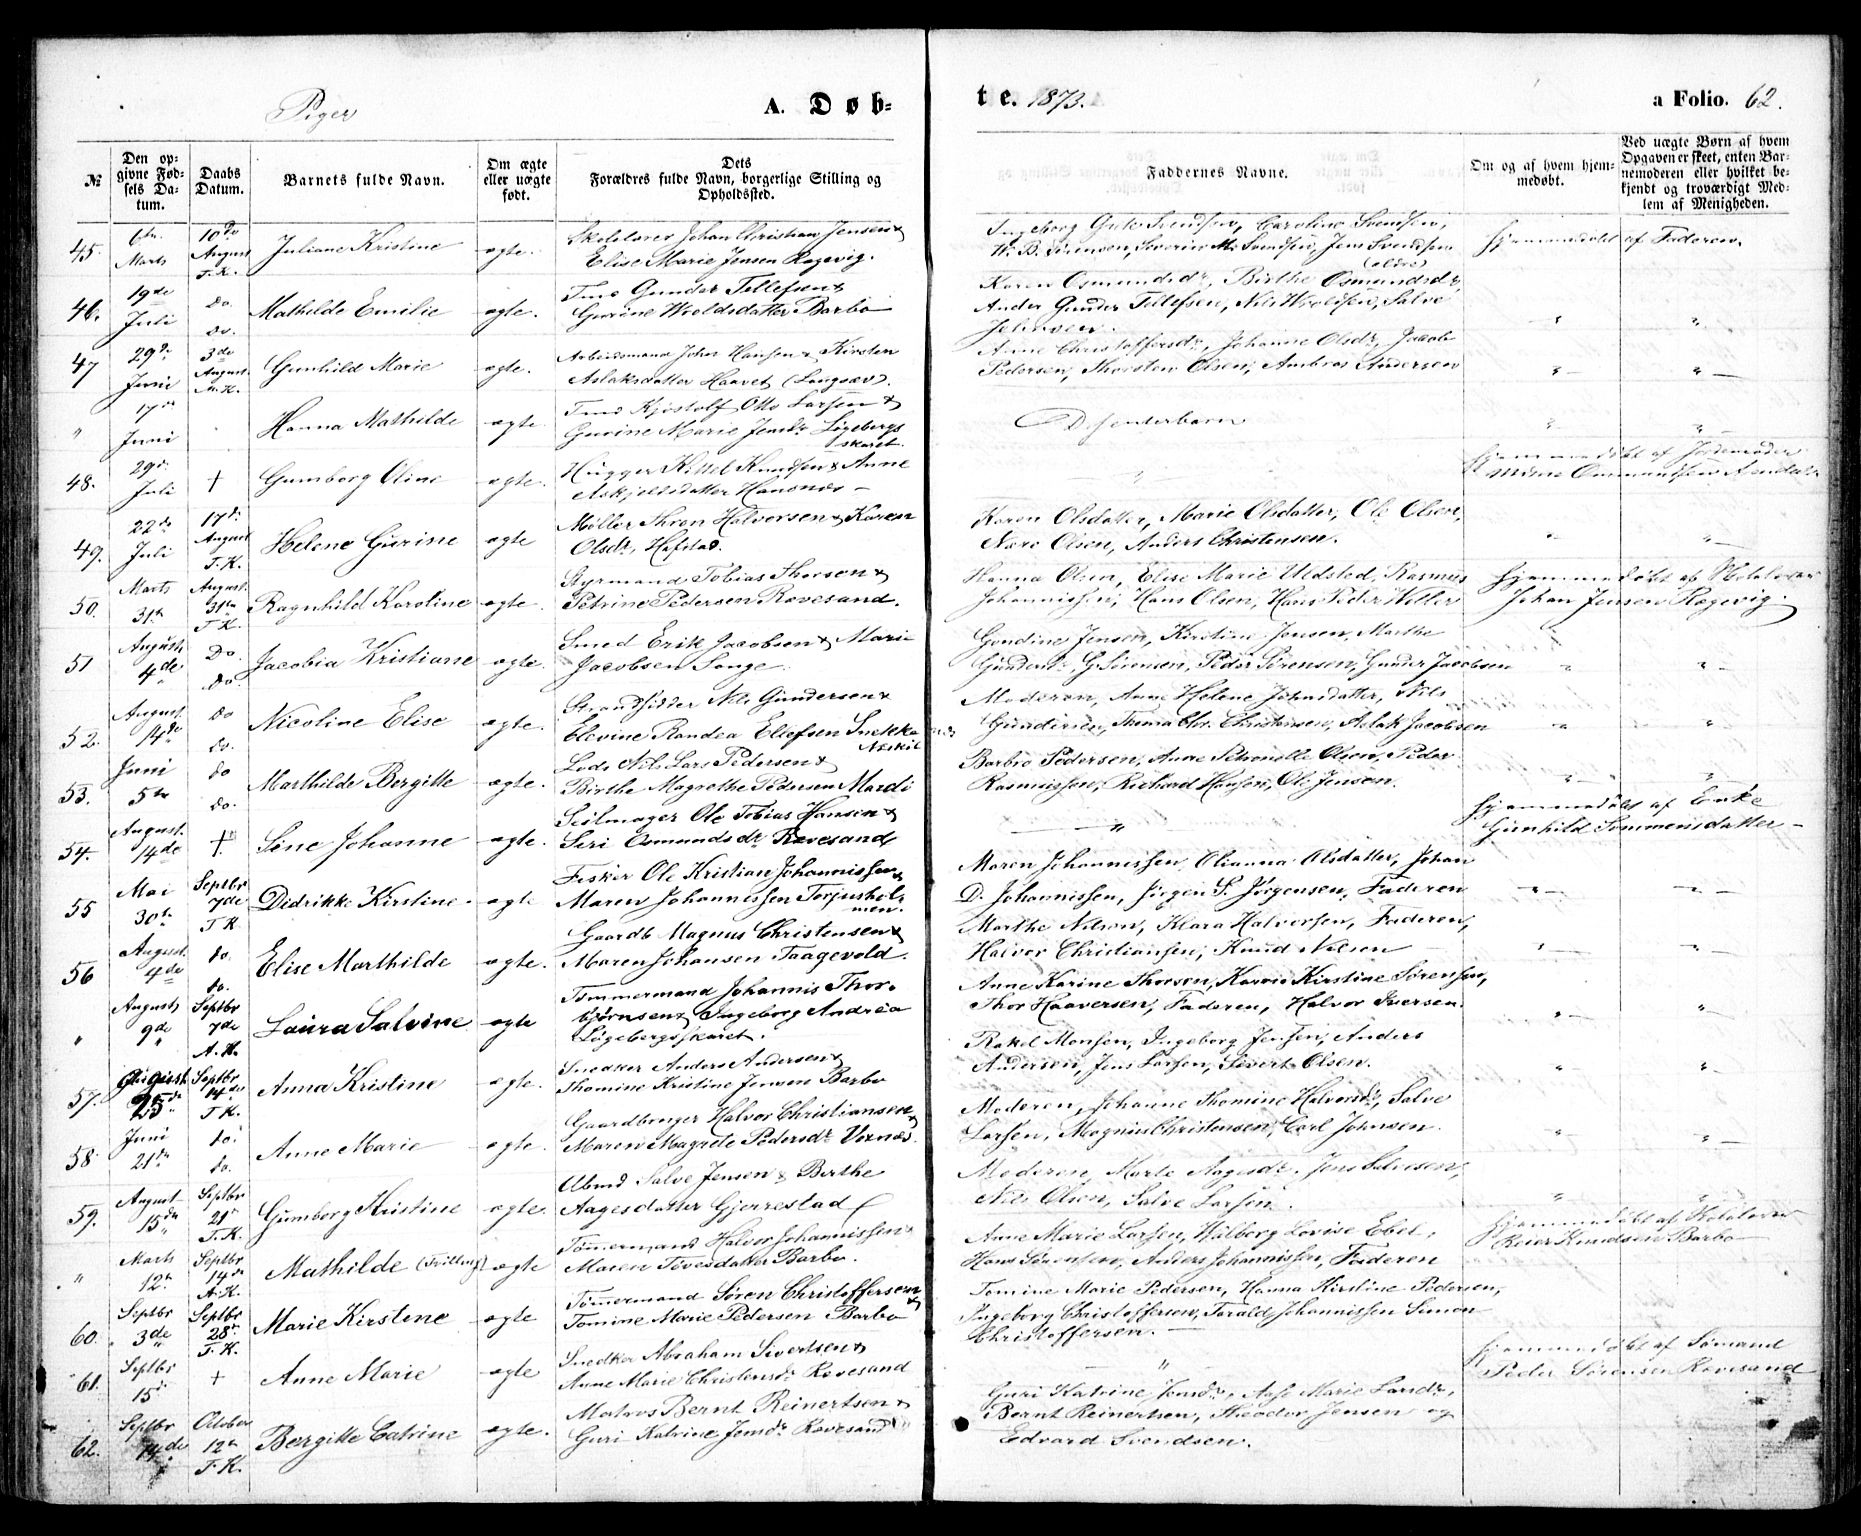 Piger
A. Døb-
te. 1873.
a Folio. 62.
№
Den op-
givne Fød-
sels Da-
tum.
Daabs
Datum.
Barnets fulde Navn.
Om ægte
eller uægte
født.
Dets
Forældres fulde Navn, borgerlige Stilling og
Opholdssted.
Faddernes Navne.
Om og af hvem hjem-
medøbt.
Ved uægte Børn af hvem
Opgaven er skeet, enten Bar-
nemoderen eller hvilket be-
kjendt og troværdigt Med-
lem af Menigheden.
45. 6te Marts 10de August T. K. Juliane Kristine ægte.
Skolelærer Johan Christian Jensen &
Elise Marie Jensen Rægevig.
Ingeborg Svendsen, Caroline Svendsen,
W. B. Sørensen, Severin M. Svendsen, Jens Svendsen
(ældre)
Hjemmedøbt af Faderen.
46. 19de Juli do. do. Mathilde Emilie ægte.
Tmd Gunder Tellefsen &
Gurine Wroldsdatter Barbo
Karen Osmundsdr, Birthe Osmundsdr,
Gunder Tellefsen, Nils Wroldsen, Salve
Johnsen.
47 29de Juni 3de August A. K. Gunhild Marie ægte.
Arbeidsmand John Hansen & Kirsten
Aslaksdatter Haavet (Langsæv).
Anne Christoffersdr, Johanne Olsdr, Jacob
Pedersen, Thorsten Olsen, Ambros Andersen
" 17de Juni Hanna Mathilde ægte
Tmd Kjøstolf Otto Larsen &
Gurine Marie Jensdr Løgebergs
skaret.
Dissenterbarn
48. 29de Juli † Gumborg Oline ægte.
Hugger Kittel Knudsen & Anne
Askjeldsdatter Hansnæs
Hjemmedøbt af Jordmoder
49. 22de Juli 17de August T. K. Helene Gurine ægte
Møller Thron Halvorsen & Karen
Olsdr, Hafstad.
Karen Olsdatter, Marie Olsdatter, Ole Olsen,
Nære Olsen, Anders Christensen.
50. Marts 31te August 31te T. K. Ragnhild Karoline ægte
Styrmand Tobias Thorsen &
Petrine Pedersen Revesand.
Hanna Olsen, Elise Marie Uldsted, Rasmus
Johannissen, Hans Olsen, Hans Peder Weller
Hjemmedøbt af Skolelærer
Johan Jensen Rægevig.
51 August 4de Do. Do. Jacobia Kristiane ægte.
Smed Erik Jacobsen & Marie
Jacobsen Songe.
Gundine Jensen, Kirstine Jensen, Marthe
Gundersdr, G. Sørensen, Peder Sørensen, Gunder Jacobsen
52. August 14de Do do. Nicoline Elise ægte.
Strandsidder Nils Gundersen &
Elevine Randea Ellefsen Snekke
Moderen, Anne Helene Johnsdatter, Nils
Gundersen, Thoma Chr. Christensen, Aslak Jacobsen
53. Juni 5te do do. Marthilde Bergitte ægte.
Lods Nils Lars Pedersen &
Birthe Magrethe Pedersen Mærdø
Barbro Pedersen, Anne Petronelle Olsen, Peder
Rasmussen, Richard Hansen, Ole Jensen.
54. August. 14de † Sine Johanne ægte.
Seilmager Ole Tobias Hansen &
Siri Osmundsdr Revesand
Hjemmedøbt af Enke
Gunhild Sommensdatter
55 Mai 30te Septbr 7de T. K. Didrikke Kirstine ægte
Fisker Ole Kristian Johannissen &
Maren Johannissen Torjushol-
men.
Maren Johannissen, Olianna Olsdatter, Johan
D. Johannissen, Jørgen S. Jørgensen, Faderen
56 August 4de do. do. Elise Marthilde ægte.
Gaardb Magnus Christensen &
Maren Johansen Taagevold.
Marthe Nilsen, Klara Halvorsen, Faderen,
Halvor Christiansen, Knud Nilsen
" August 9de Septbr 7de A. K. Laura Salvine ægte
Tømmermand Johannis Thor-
bjørnsen & Ingeborg Andrea
Løgebergsskaret.
Anne Karine Thorsen, Karen Kirstine Sørensen,
Thor Haaversen, Faderen, Halvor Iversen.
57. August 25de Septbr 14de T. K. Anna Kristine ægte.
Snedker Anders Andersen &
Thomine Kristine Jensen Barbo
Rakel Monsen, Ingeborg Jensen, Anders
Andersen, Jens Larsen, Sivert Olsen.
58. Juni 21de do. do. Anne Marie ægte.
Gaardbruger Halvor Christiansen &
Maren Magrete Pedersdr Vernæs.
Moderen, Johanne Thomine Halvorsdr, Salve
Larsen, Magnus Christensen, Carl Johnsen.
59. August 15de Septbr 21de T. K. Gumborg Kristine ægte.
Arbmd Salve Jensen & Berthe
Aagesdatter Gjerrestad
Moderen, Marte Aagesdr. Jens Salvesen,
Nils Olsen, Salve Larsen.
" Marts 12te Septbr 14de A. K. Mathilde (Tvilling) ægte
Tømermand Halvor Johannissen &
Maren Tovesdatter Barbo.
Anne Marie Larsen, Wilborg Lovise Ebel,
Hans Sørensen, Anders Johannissen, Faderen
Hjemmedøbt af Skolelærer
Reier Knudsen Barbo
60. Septbr 3de Septbr 28de T. K. Marie Kirstine ægte
Tømermand Søren Christoffersen &
Tomine Marie Pedersen Barbo
Tomine Marie Pedersen, Hanna Kirstine Pedersen,
Ingeborg Christoffersen, Tarald Johannissen Simon
Christoffersen.
61. Septbr 15de † Anne Marie ægte
Snedker Abraham Sivertsen &
Anne Marie Christensdr Revesand
Hjemmedøbt af Sømand
Peder Sørensen Revesand
62. Septbr 14de October 12te T. K. Bergitte Catrine ægte.
Matros Bernt Reinertsen &
Guri Katrine Jensdr Revesand
Guri Katrine Jensdr, Aase Marie Larsdr,
Bernt Reinertsen, Theodor Jensen og
Edvard Svendsen.